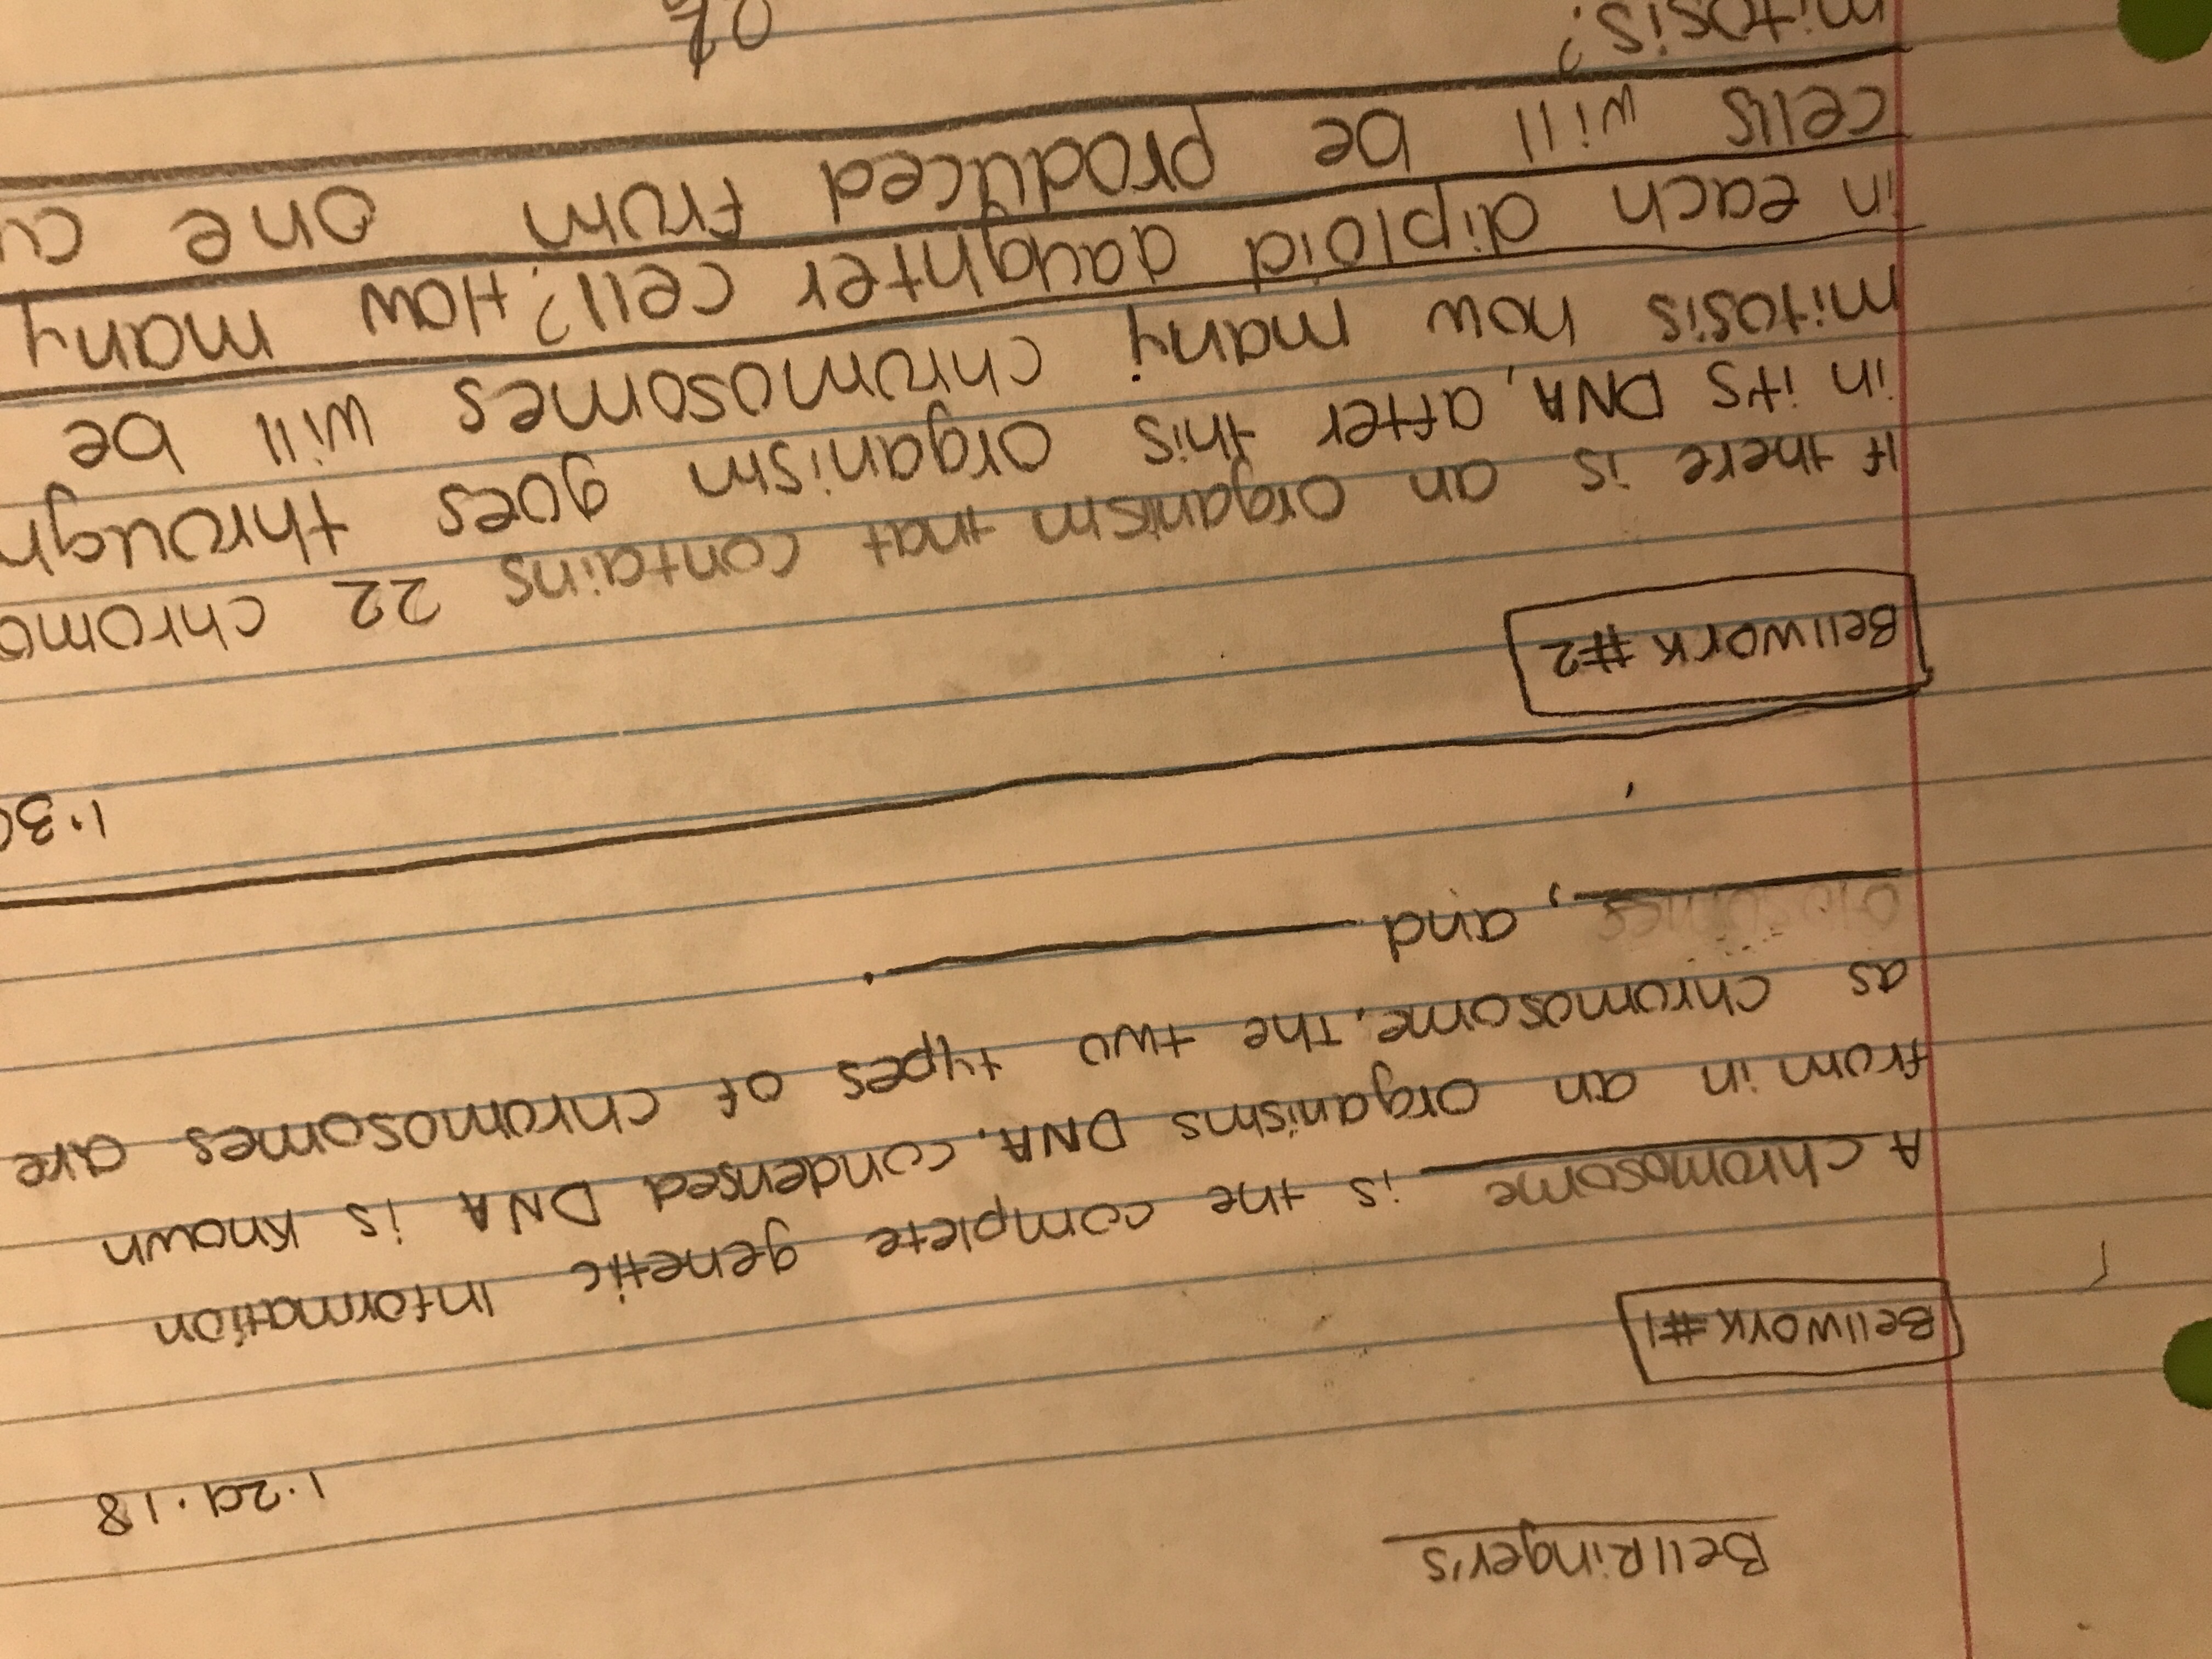 BellRinger's
1.29.18
Bellwork #1
A chromosome is the complete genetic information
from in an organisms DNA. condensed DNA is known
as chromosome. The two types of chromosomes are
, and .
1.30
Bellwork #2
If there is an organism that contains 22 chromo
in its DNA, after this organism goes through
mitosis how many chromosomes will be
in each diploid daughter cell? How many
cells will be produced from one
mitosis?